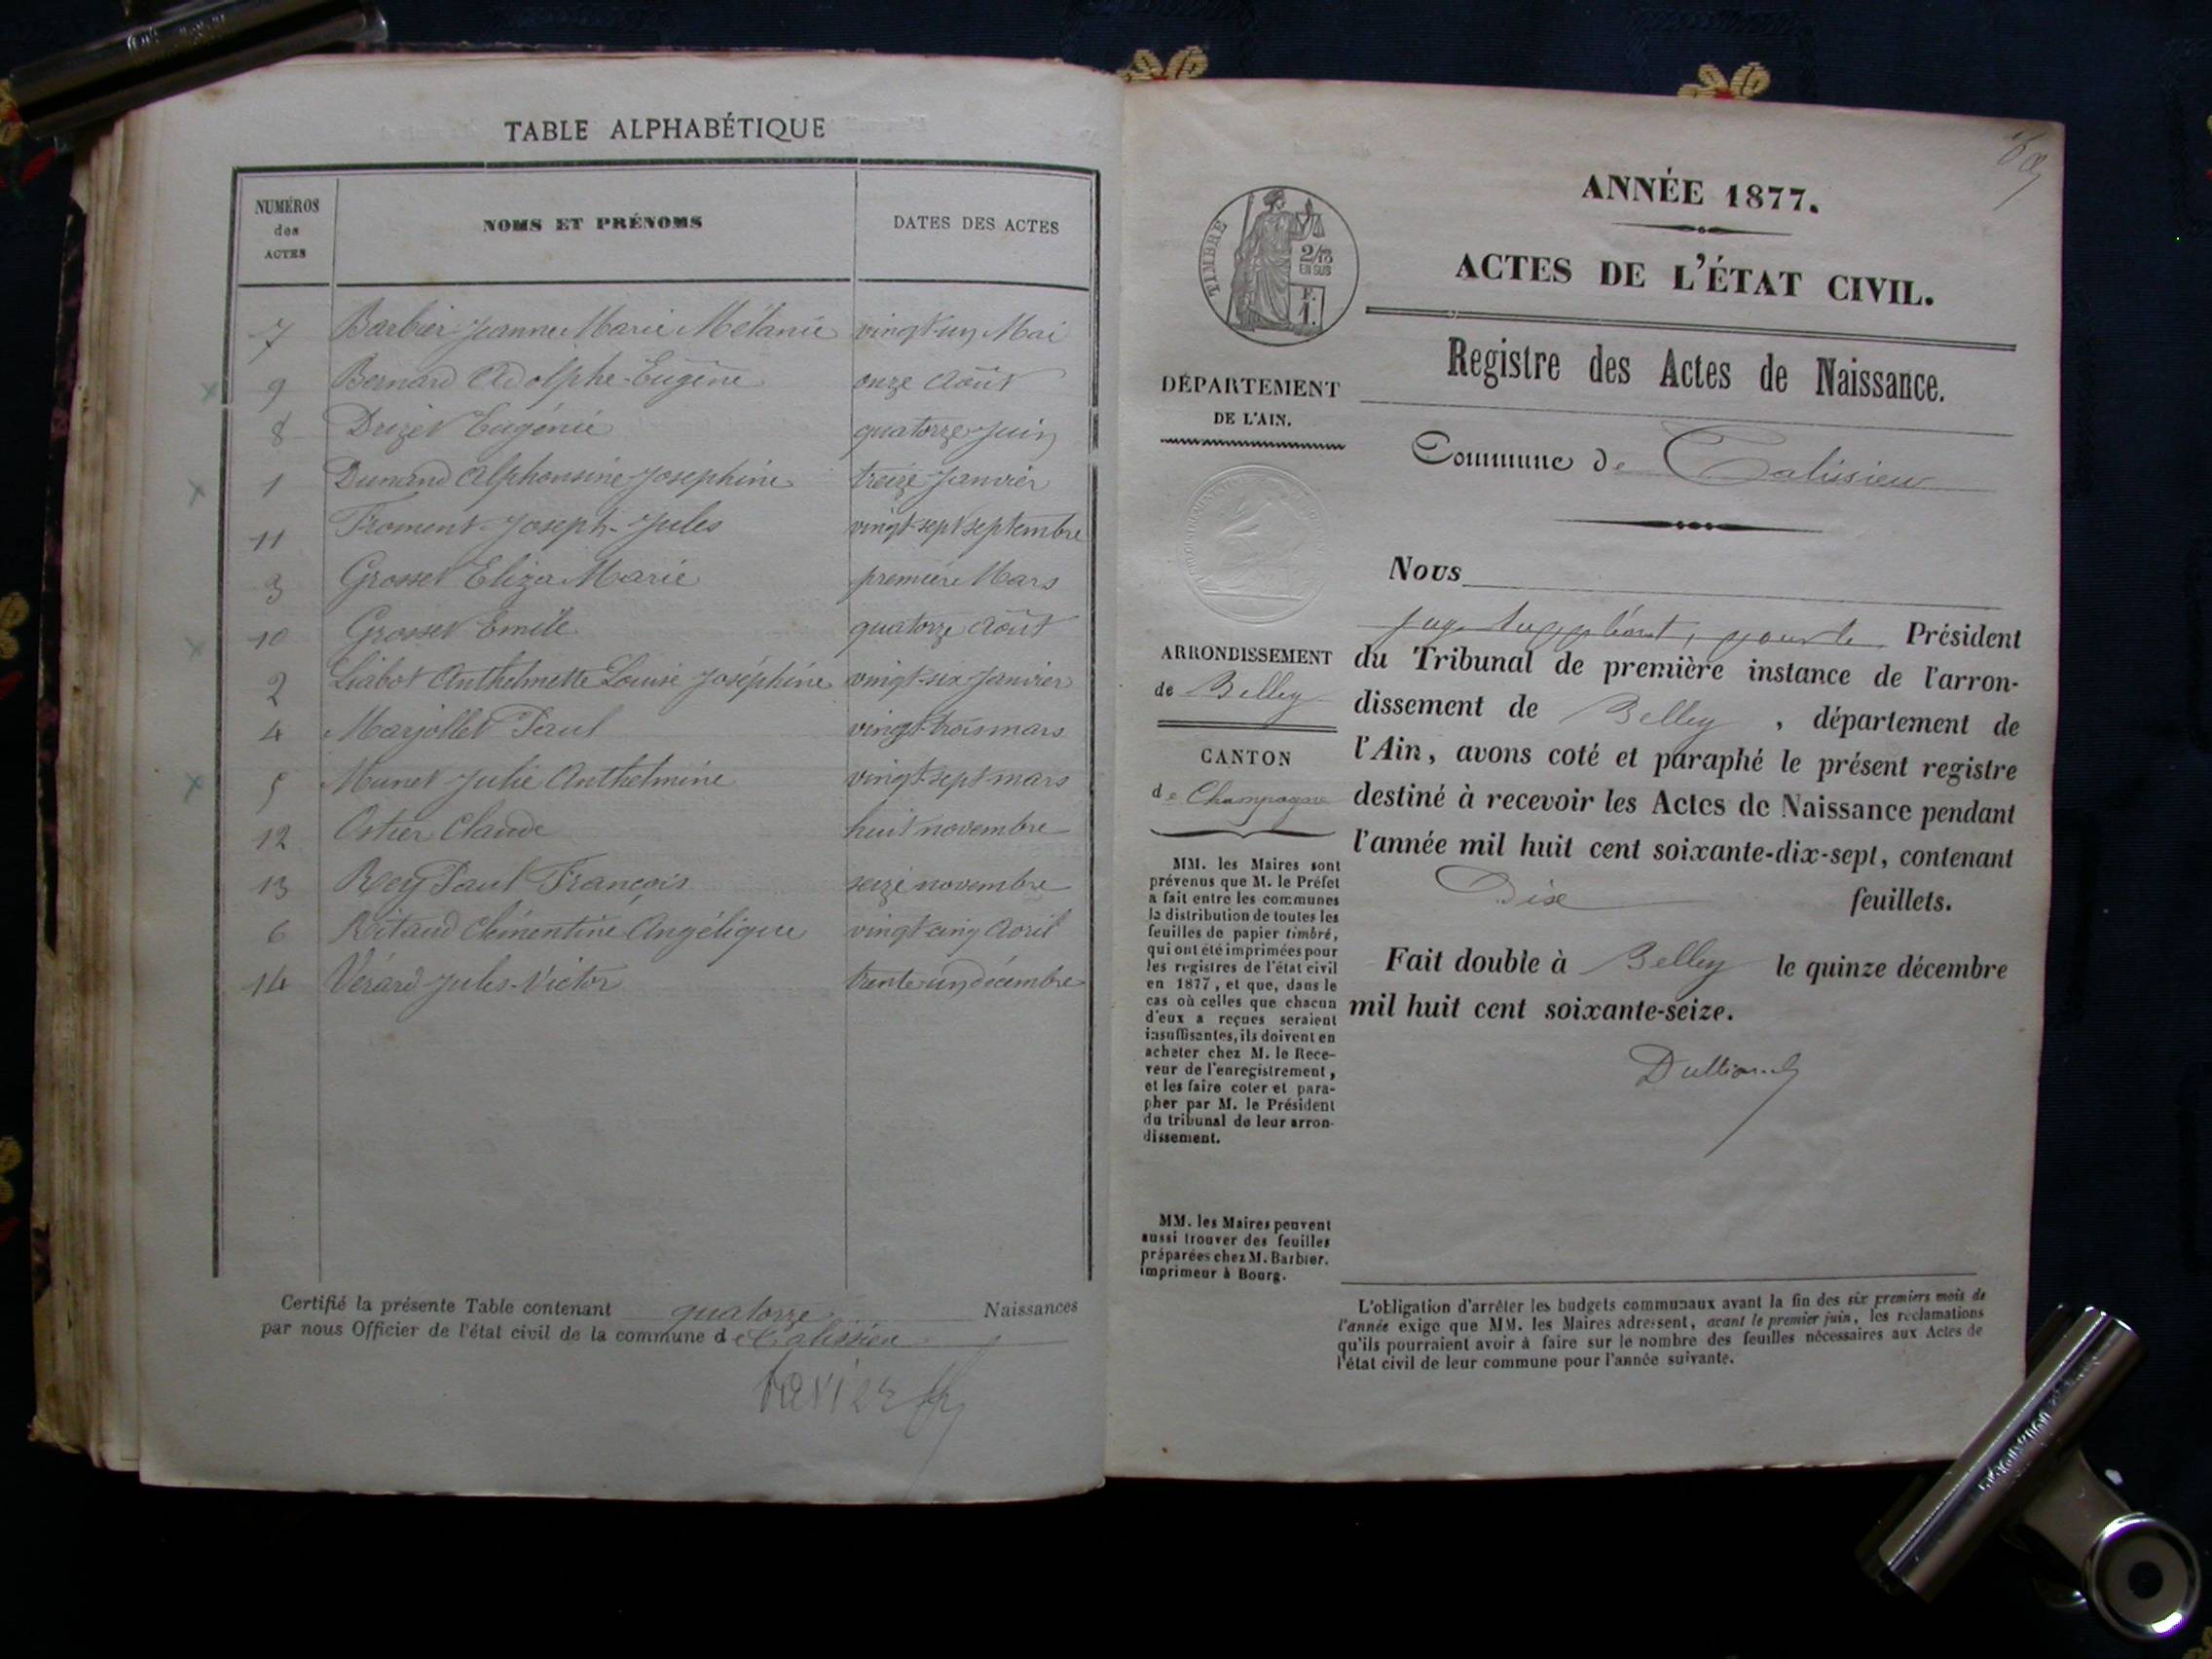 TABLE ALPHABÉTIQUE
NUMÉROS
des
ACTES
NOMS ET PRÉNOMS
DATES DES ACTES
7 Barbier Jeanne Marie Mélanie vingt-un Mai
x 9 Bernard Adolphe-Eugène onze Août
8 Drizet Eugénie quatorze Juin
x 1 Dunand Alphonsine Josephine treize Janvier
11 Froment-Joseph-Jules vingt-sept septembre
3 Grosset Eliza Marie premier Mars
x 10 Grosset Emile quatorze Août
2 Liabot Anthelmette Louise Joséphine vingt-six Janvier
4 Marjollet Paul vingt-trois mars
x 5 Munet Julie Anthelmine vingt-sept mars
12 Ostier Claude huit novembre
13 Rey Paul François seize novembre
6 Ritaud Clémentine Angélique vingt cinq Avril
14 Vérard Jules-Victor trente-un décembre
Certifié la présente Table contenant quatorze Naissances
par nous Officier de l'état civil de la commune de Talissieu
ANNÉE 1877.
ACTES DE L'ÉTAT CIVIL.
TIMBRE
2/10
EN SUS
F.
1.
Registre des Actes de Naissance.
DÉPARTEMENT
DE L'AIN.
Commune de Talissieu
ARRONDISSEMENT
de Belley
CANTON
de Champagne
MM. les Maires sont
prévenus que M. le Préfet
a fait entre les communes
la distribution de toutes les
feuilles de papier timbré,
qui ont été imprimées pour
les registres de l'état civil
en 1877, et que, dans le
cas où celles que chacun
d'eux a reçues seraient
insuffisantes, ils doivent en
acheter chez M. le Rece-
veur de l'enregistrement,
et les faire coter et para-
pher par M. le Président
du tribunal de leur arron-
dissement.
MM. les Maires peuvent
aussi trouver des feuilles
préparées chez M. Barbier,
imprimeur à Bourg.
Nous
juge suppléant, pour le Président
du Tribunal de première instance de l'arron-
dissement de Belley, département de
l'Ain, avons coté et paraphé le présent registre
destiné à recevoir les Actes de Naissance pendant
l'année mil huit cent soixante-dix-sept, contenant
Dix feuillets.
Fait double à Belley le quinze décembre
mil huit cent soixante-seize.
L'obligation d'arrêter les budgets communaux avant la fin des six premiers mois de
l'année exige que MM. les Maires adressent, avant le premier juin, les réclamations
qu'ils pourraient avoir à faire sur le nombre des feuilles nécessaires aux Actes de
l'état civil de leur commune pour l'année suivante.